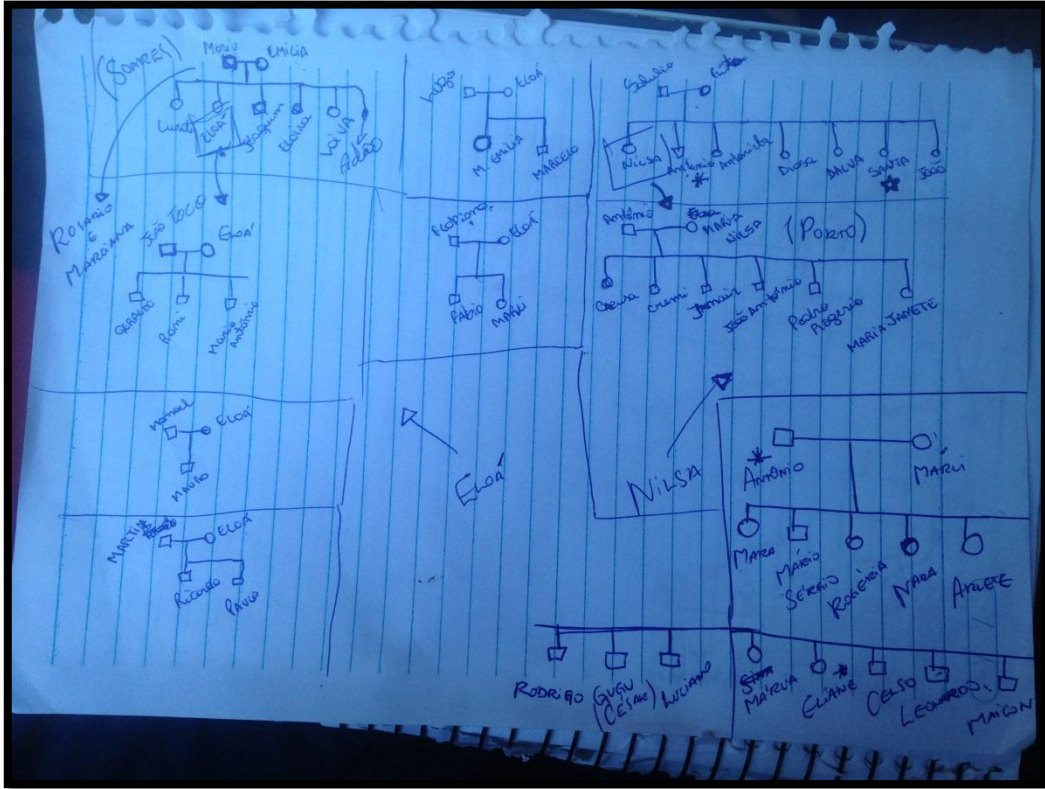 (SOARES)
Mario EMILIA
ELOÁ Joaquim Elaine
ROSARIO
E
MARCIANA
JOÃO TOCO ELOÁ
GERALDO Romi Mario
Antônio
Manoel ELOÁ
MAURO
MARTIM ELOÁ
Ricardo PAULO
Hugo ELOÁ
M. EMILIA MARCELO
ELOÁ
FABIO MARLI
ELOÁ
NILSA Antônio Antonieta DALVA SANTA JOÃO
Antônio MARIA
NILSA
(PORTO)
Jamair João Antônio Pedro
Rogério MARIA JANETE
NILSA
ANTÔNIO MARLI
MARA MÁRIO
SÉRGIO ROGÉRIA NARA ARLETE
RODRIGO GUGU
(CÉSAR) LUCIANO MÁRCIA ELIANE CELSO LEONARDO MAICON